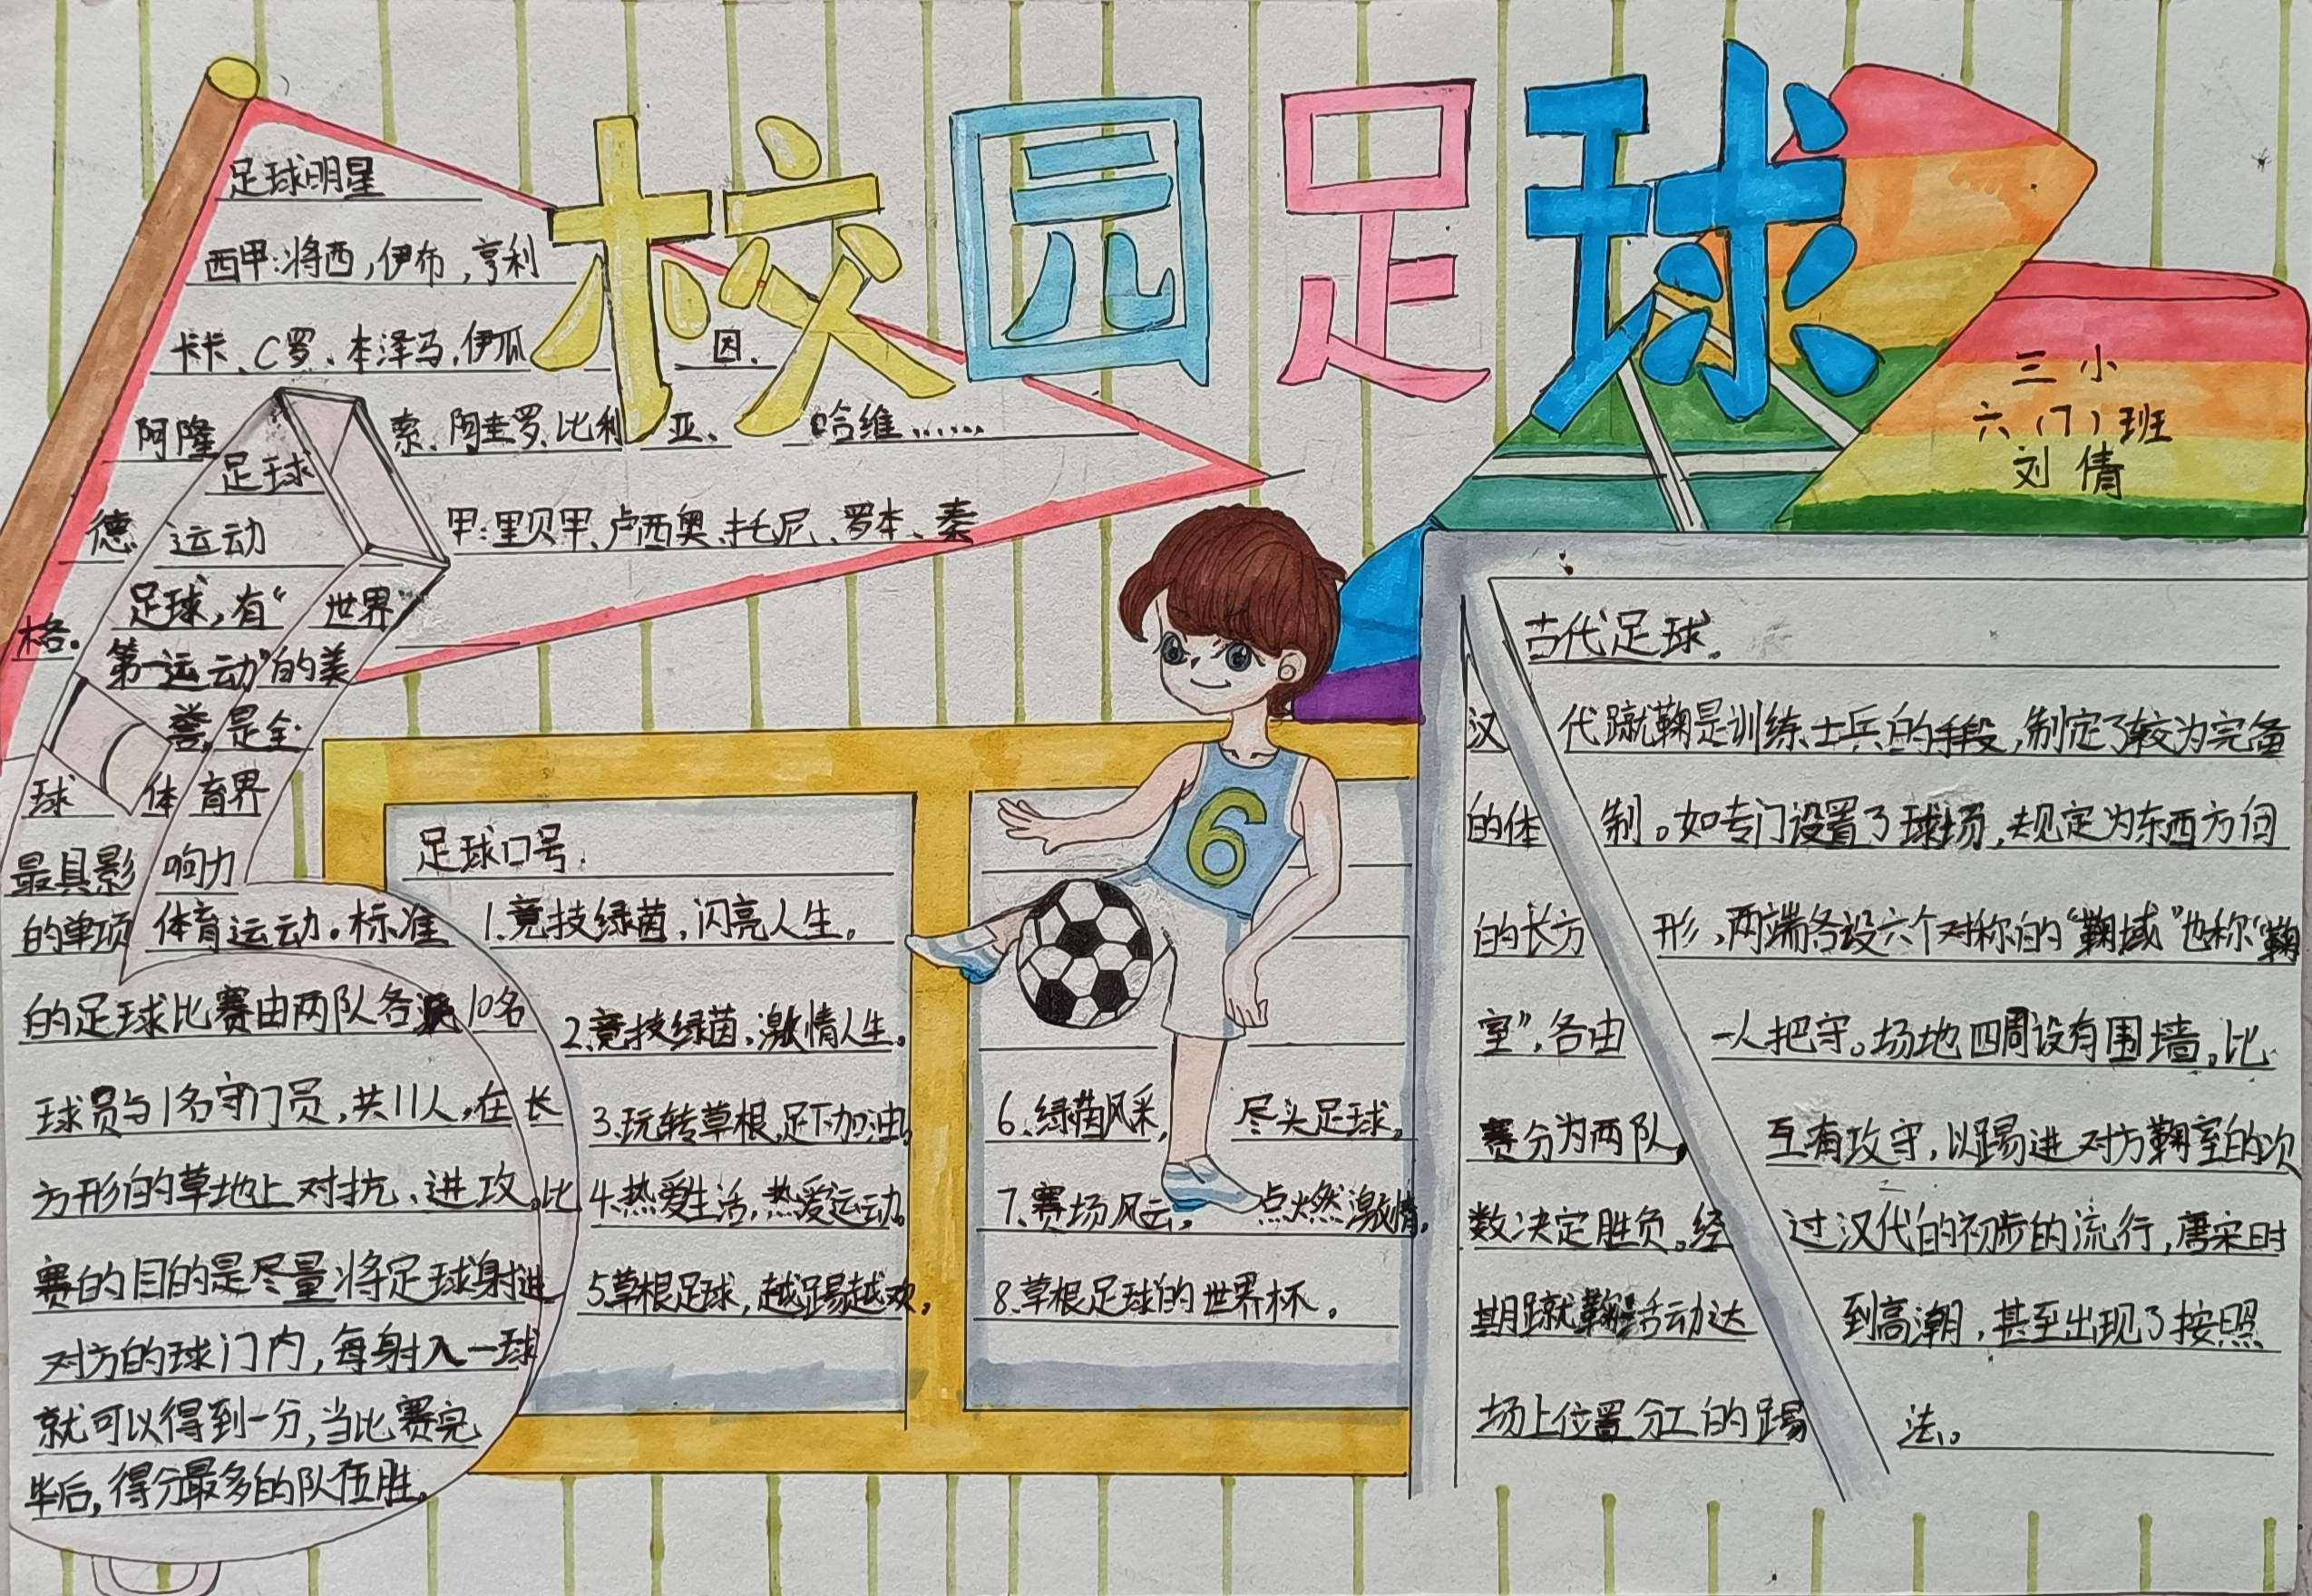 校园足球
三小
六(7)班
刘倩
足球明星
西甲:将西,伊布,亨利
卡卡、C罗、本泽马,伊瓜因、
阿隆索、阿圭罗、比利亚、哈维……
德甲:里贝甲、卢西奥、托尼、罗本、秦
格。
足球
运动
足球,有“世界
第一运动”的美
誉,是全
球体育界
最具影响力
的单项体育运动。标准
的足球比赛由两队各派10名
球员与1名守门员,共11人,在长
方形的草地上对抗、进攻。比
赛的目的是尽量将足球射进
对方的球门内,每射入一球
就可以得到一分,当比赛完
毕后,得分最多的队伍胜。
足球口号.
1.竞技绿茵,闪亮人生。
2.竞技绿茵,激情人生。
3.玩转草根,足下加油。
4.热爱生活,热爱运动。
5.草根足球,越踢越欢。
6.绿茵风采,尽头足球。
7.赛场风云,点燃激情。
8.草根足球的世界杯。
6
古代足球.
汉代蹴鞠是训练士兵的手段,制定了较为完备
的体制。如专门设置了球场,规定为东西方向
的长方形,两端各设六个对称的“鞠域”也称“鞠
室”,各由一人把守。场地四周设有围墙。比
赛分为两队,互有攻守,以踢进对方鞠室的次
数决定胜负。经过汉代的初步的流行,唐宋时
期蹴鞠活动达到高潮,甚至出现了按照
场上位置分工的踢法。